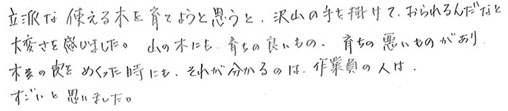 立派な使える木を育てようと思うと、沢山の手を掛けて、おられるんだなと
大変さを感じました。山の木にも、育ちの良いもの、育ちの悪いものがあり、
木の皮をめくった時にも、それが分かるのは、作業員の人は、
すごいと思いました。